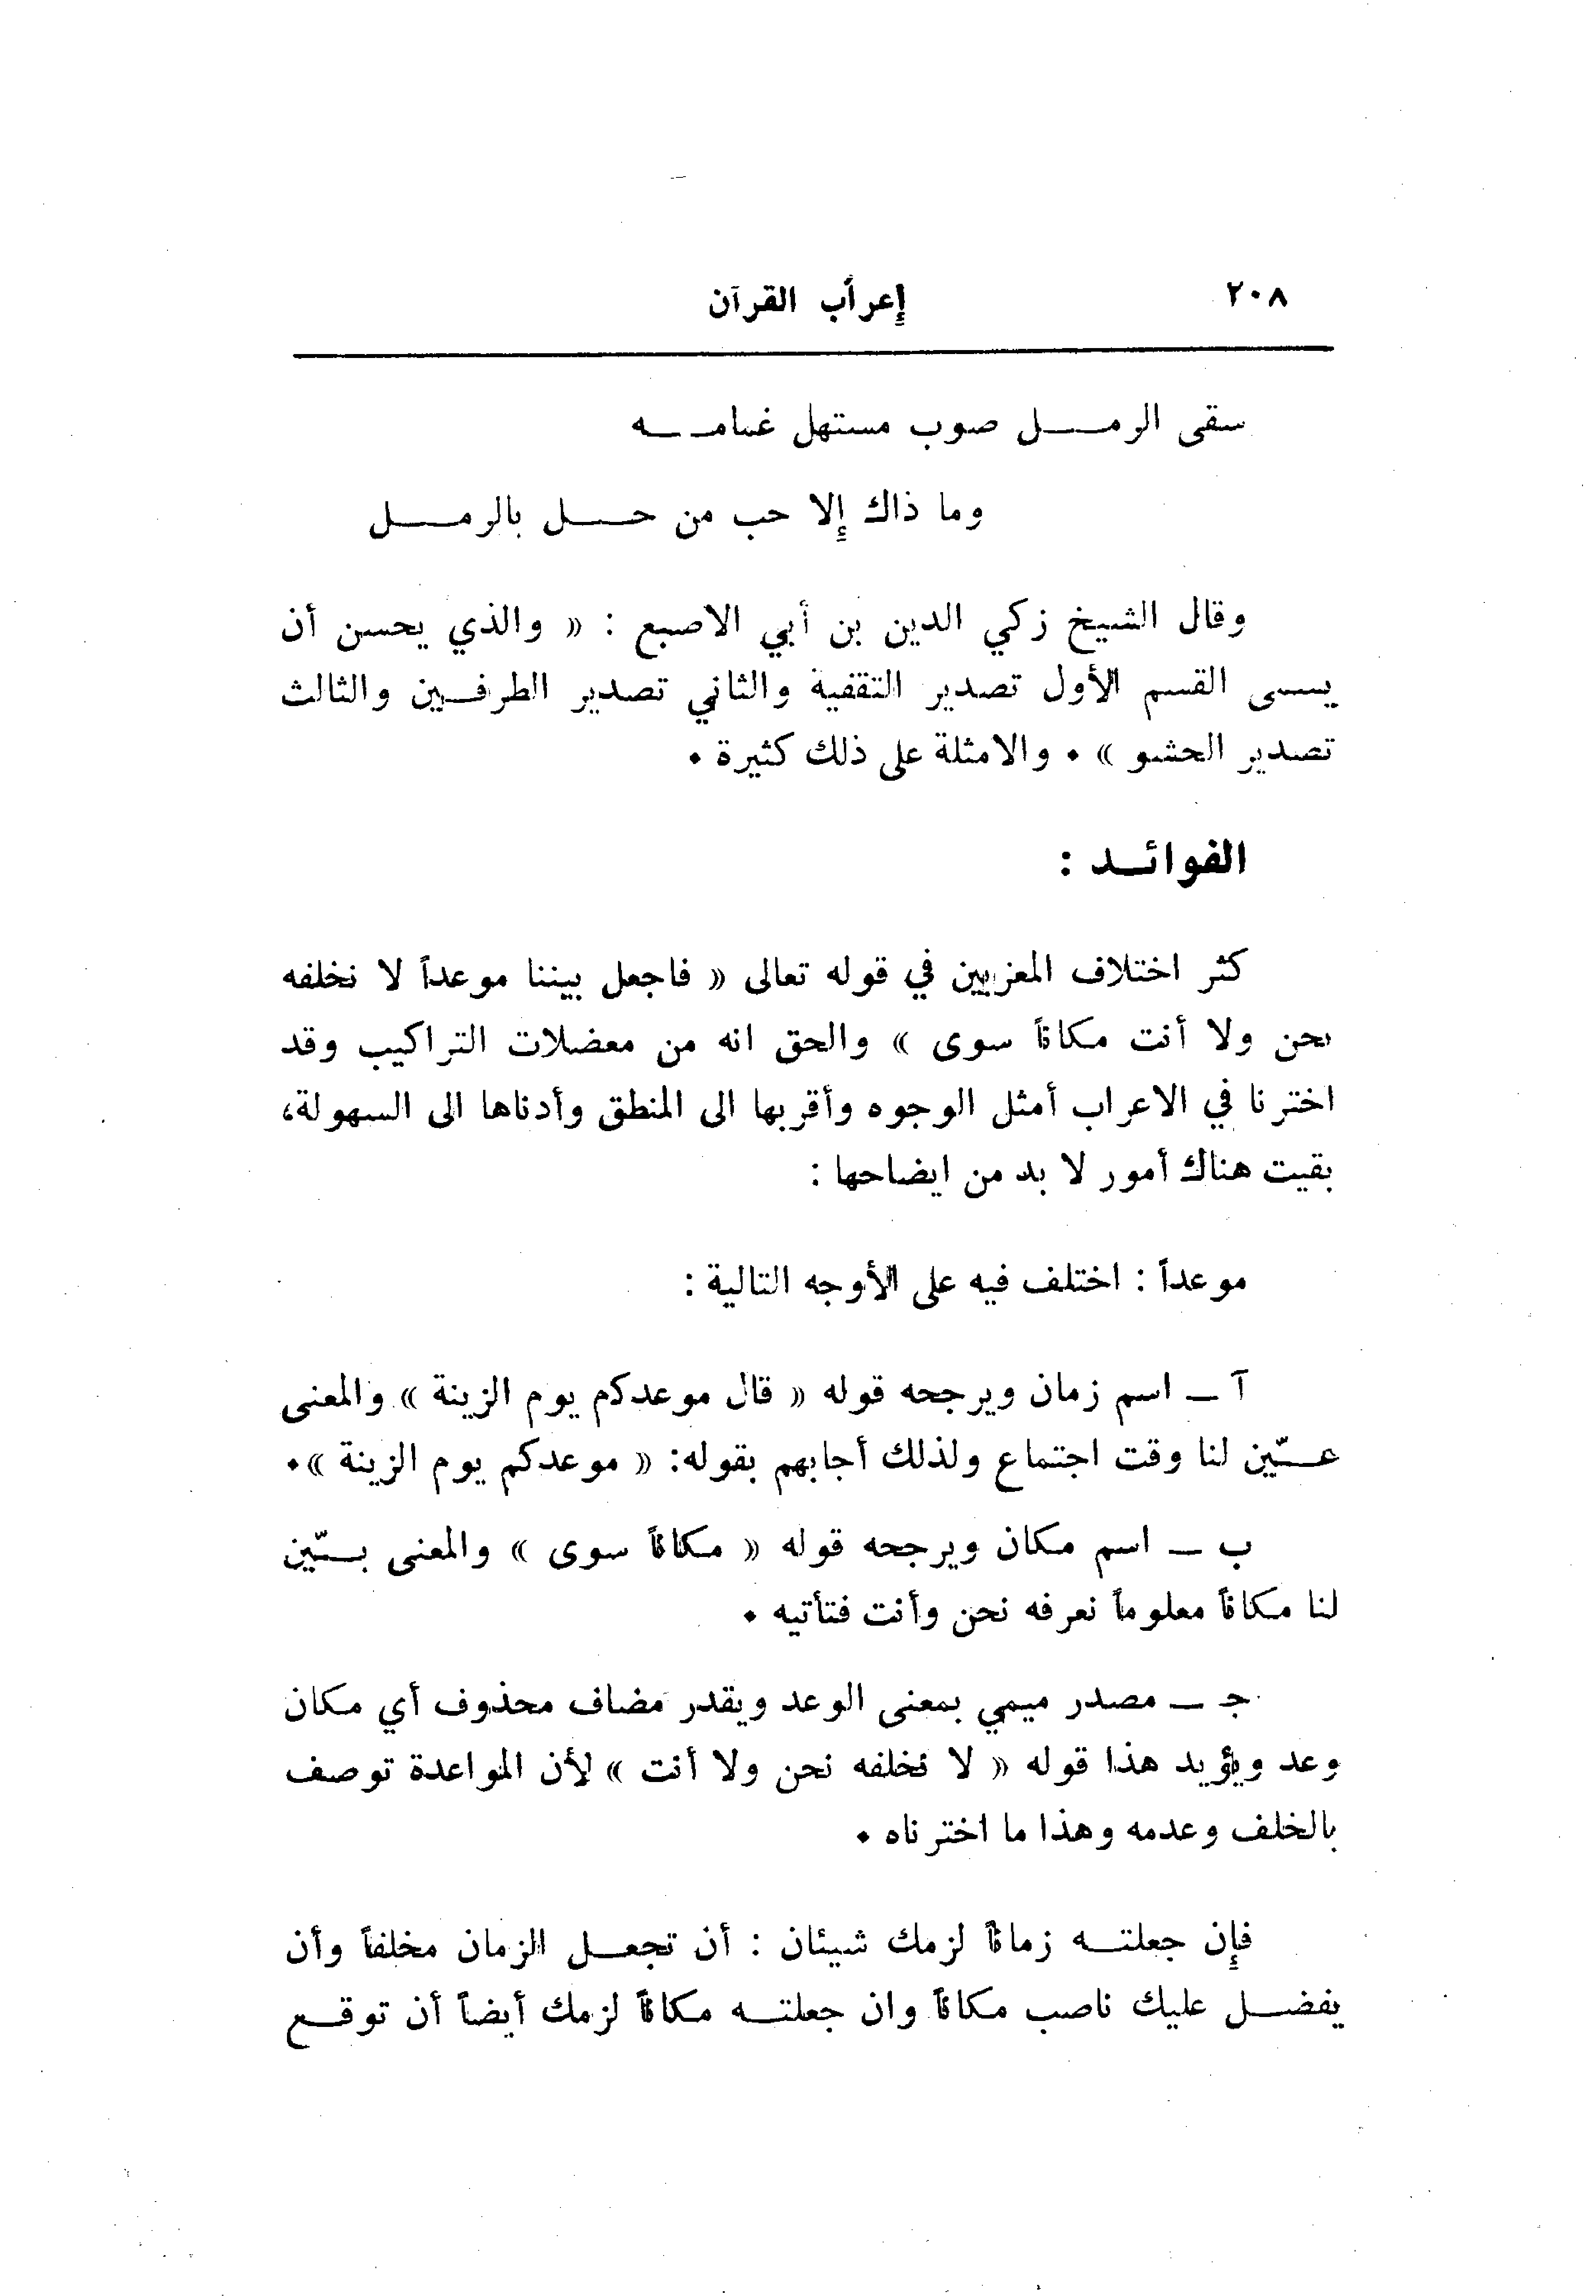 ٢٠٨ إعراب القرآن
سقى الرمل صوب مستهل غمامه
وما ذاك إلا حب من حل بالرمل
وقال الشيخ زكي الدين بن أبي الاصبع : « والذي يحسن أن
يسمى القسم الأول تصدير التقفية والثاني تصدير الطرفين والثالث
تصدير الحشو » • والامثلة على ذلك كثيرة •
الفوائد :
كثر اختلاف المعربين في قوله تعالى « فاجعل بيننا موعداً لا نخلفه
نحن ولا أنت مكاناً سوى » والحق انه من معضلات التراكيب وقد
اخترنا في الاعراب أمثل الوجوه وأقربها الى المنطق وأدناها الى السهولة،
بقيت هناك أمور لا بد من ايضاحها :
موعداً : اختلف فيه على الأوجه التالية :
آ ــ اسم زمان ويرجحه قوله « قال موعدكم يوم الزينة » والمعنى
عيّن لنا وقت اجتماع ولذلك أجابهم بقوله: « موعدكم يوم الزينة »•
ب ــ اسم مكان ويرجحه قوله « مكاناً سوى » والمعنى بيّن
لنا مكاناً معلوماً نعرفه نحن وأنت فنأتيه •
جـ ــ مصدر ميمي بمعنى الوعد ويقدر مضاف محذوف أي مكان
وعد ويؤيد هذا قوله « لا نخلفه نحن ولا أنت » لأن المواعدة توصف
بالخلف وعدمه وهذا ما اخترناه •
فإن جعلته زماناً لزمك شيئان : أن تجعل الزمان مخلفاً وأن
يفضل عليك ناصب مكاناً وان جعلته مكاناً لزمك أيضاً أن توقع